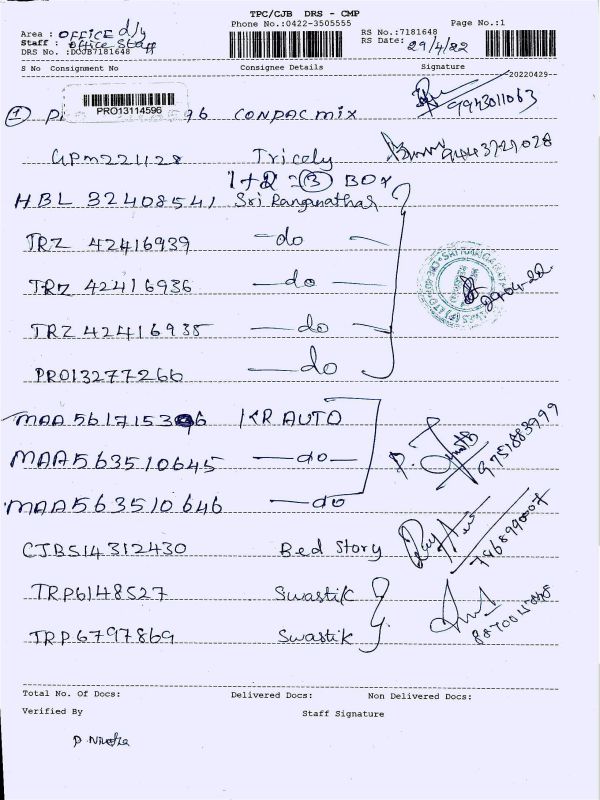 TPC/CJB DRS - CMP
Phone No.:0422-3505555 Page No.:1
Area : OFFICE d/y
Staff : office Staff
DRS No. :DCJB7181648
RS No.:7181648
RS Date: 29/4/22
S No Consignment No Consignee Details Signature
20220429
① PRO13114596 96 CONPAC mix 9943011063
GPM221128 Tricely
1+2 = ③ BOX
HBL 32408541 Sri Ranganathar
TRZ 42416939 -do-
TRZ 42416936 -do-
29-04-22
TRZ 42416935 -do-
PRO13277266 -do
MAA561715396 KR AUTO
MAA563510645 -do-
9751883999
MAA563510646 -do
CJB514312430 Bed Story
TRP6148527 Swastik
TRP6797869 Swastik
Total No. Of Docs: Delivered Docs: Non Delivered Docs:
Verified By Staff Signature